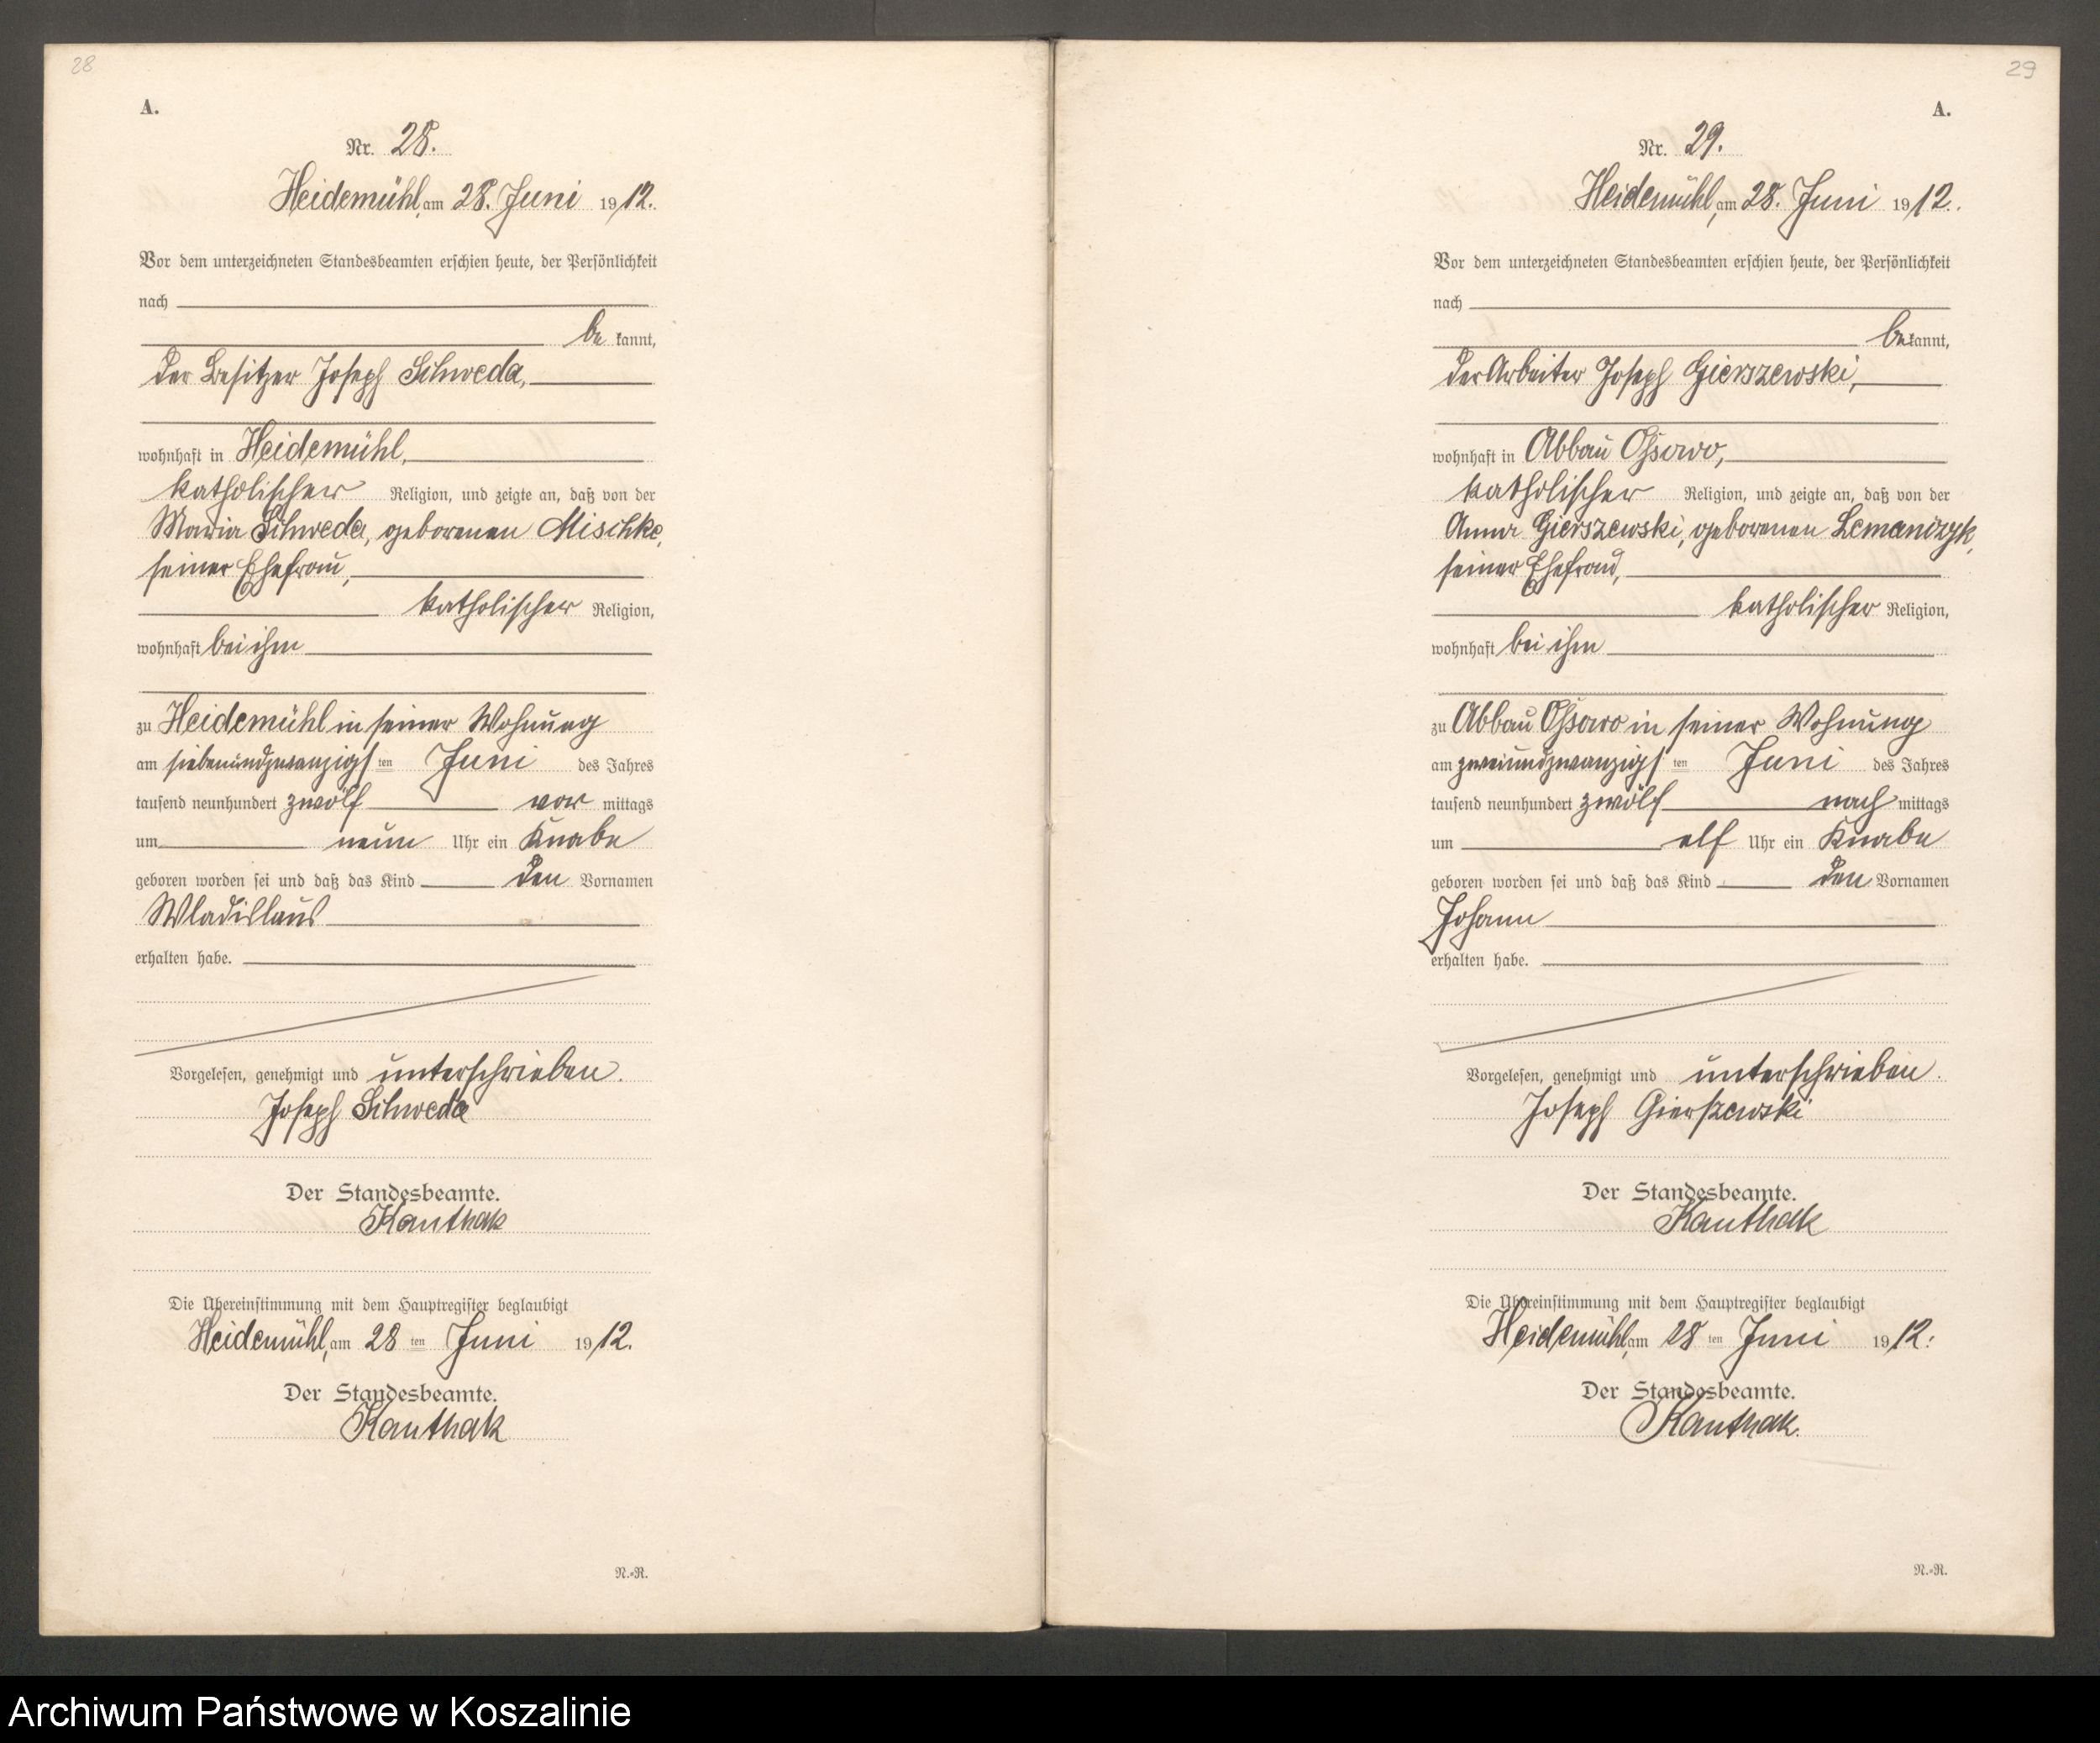 28
A.
Nr. 28.
Heidemühl, am 28. Juni 1912.
Vor dem unterzeichneten Standesbeamten erschien heute, der Persönlichkeit
nach
be kannt,
der Besitzer Joseph Schweda,
wohnhaft in Heidemühl,
katholischer Religion, und zeigte an, daß von der
Maria Schweda, geborenen Mischke,
seiner Ehefrau,
katholischer Religion,
wohnhaft bei ihm
zu Heidemühl in seiner Wohnung
am siebenundzwanzigsten Juni des Jahres
tausend neunhundert zwölf vor mittags
um neun Uhr ein Knabe
geboren worden sei und daß das Kind den Vornamen
Wladislaus
erhalten habe.
Vorgelesen, genehmigt und unterschrieben.
Joseph Schweda
Der Standesbeamte.
Kanthak
Die Übereinstimmung mit dem Hauptregister beglaubigt
Heidemühl, am 28 ten Juni 1912.
Der Standesbeamte.
Kanthak
N.-R.
29
A.
Nr. 29.
Heidemühl, am 28. Juni 1912.
Vor dem unterzeichneten Standesbeamten erschien heute, der Persönlichkeit
nach
bekannt,
der Arbeiter Joseph Gierszewski,
wohnhaft in Abbau Ossowo,
katholischer Religion, und zeigte an, daß von der
Anna Gierszewski, geborenen Lemanczyk,
seiner Ehefrau,
katholischer Religion,
wohnhaft bei ihm
zu Abbau Ossowo in seiner Wohnung
am zweiundzwanzigsten Juni des Jahres
tausend neunhundert zwölf nach mittags
um elf Uhr ein Knabe
geboren worden sei und daß das Kind den Vornamen
Johann
erhalten habe.
Vorgelesen, genehmigt und unterschrieben.
Joseph Gierszewski
Der Standesbeamte.
Kanthak
Die Übereinstimmung mit dem Hauptregister beglaubigt
Heidemühl, am 28 ten Juni 1912.
Der Standesbeamte.
Kanthak.
N.-R.
Archiwum Państwowe w Koszalinie